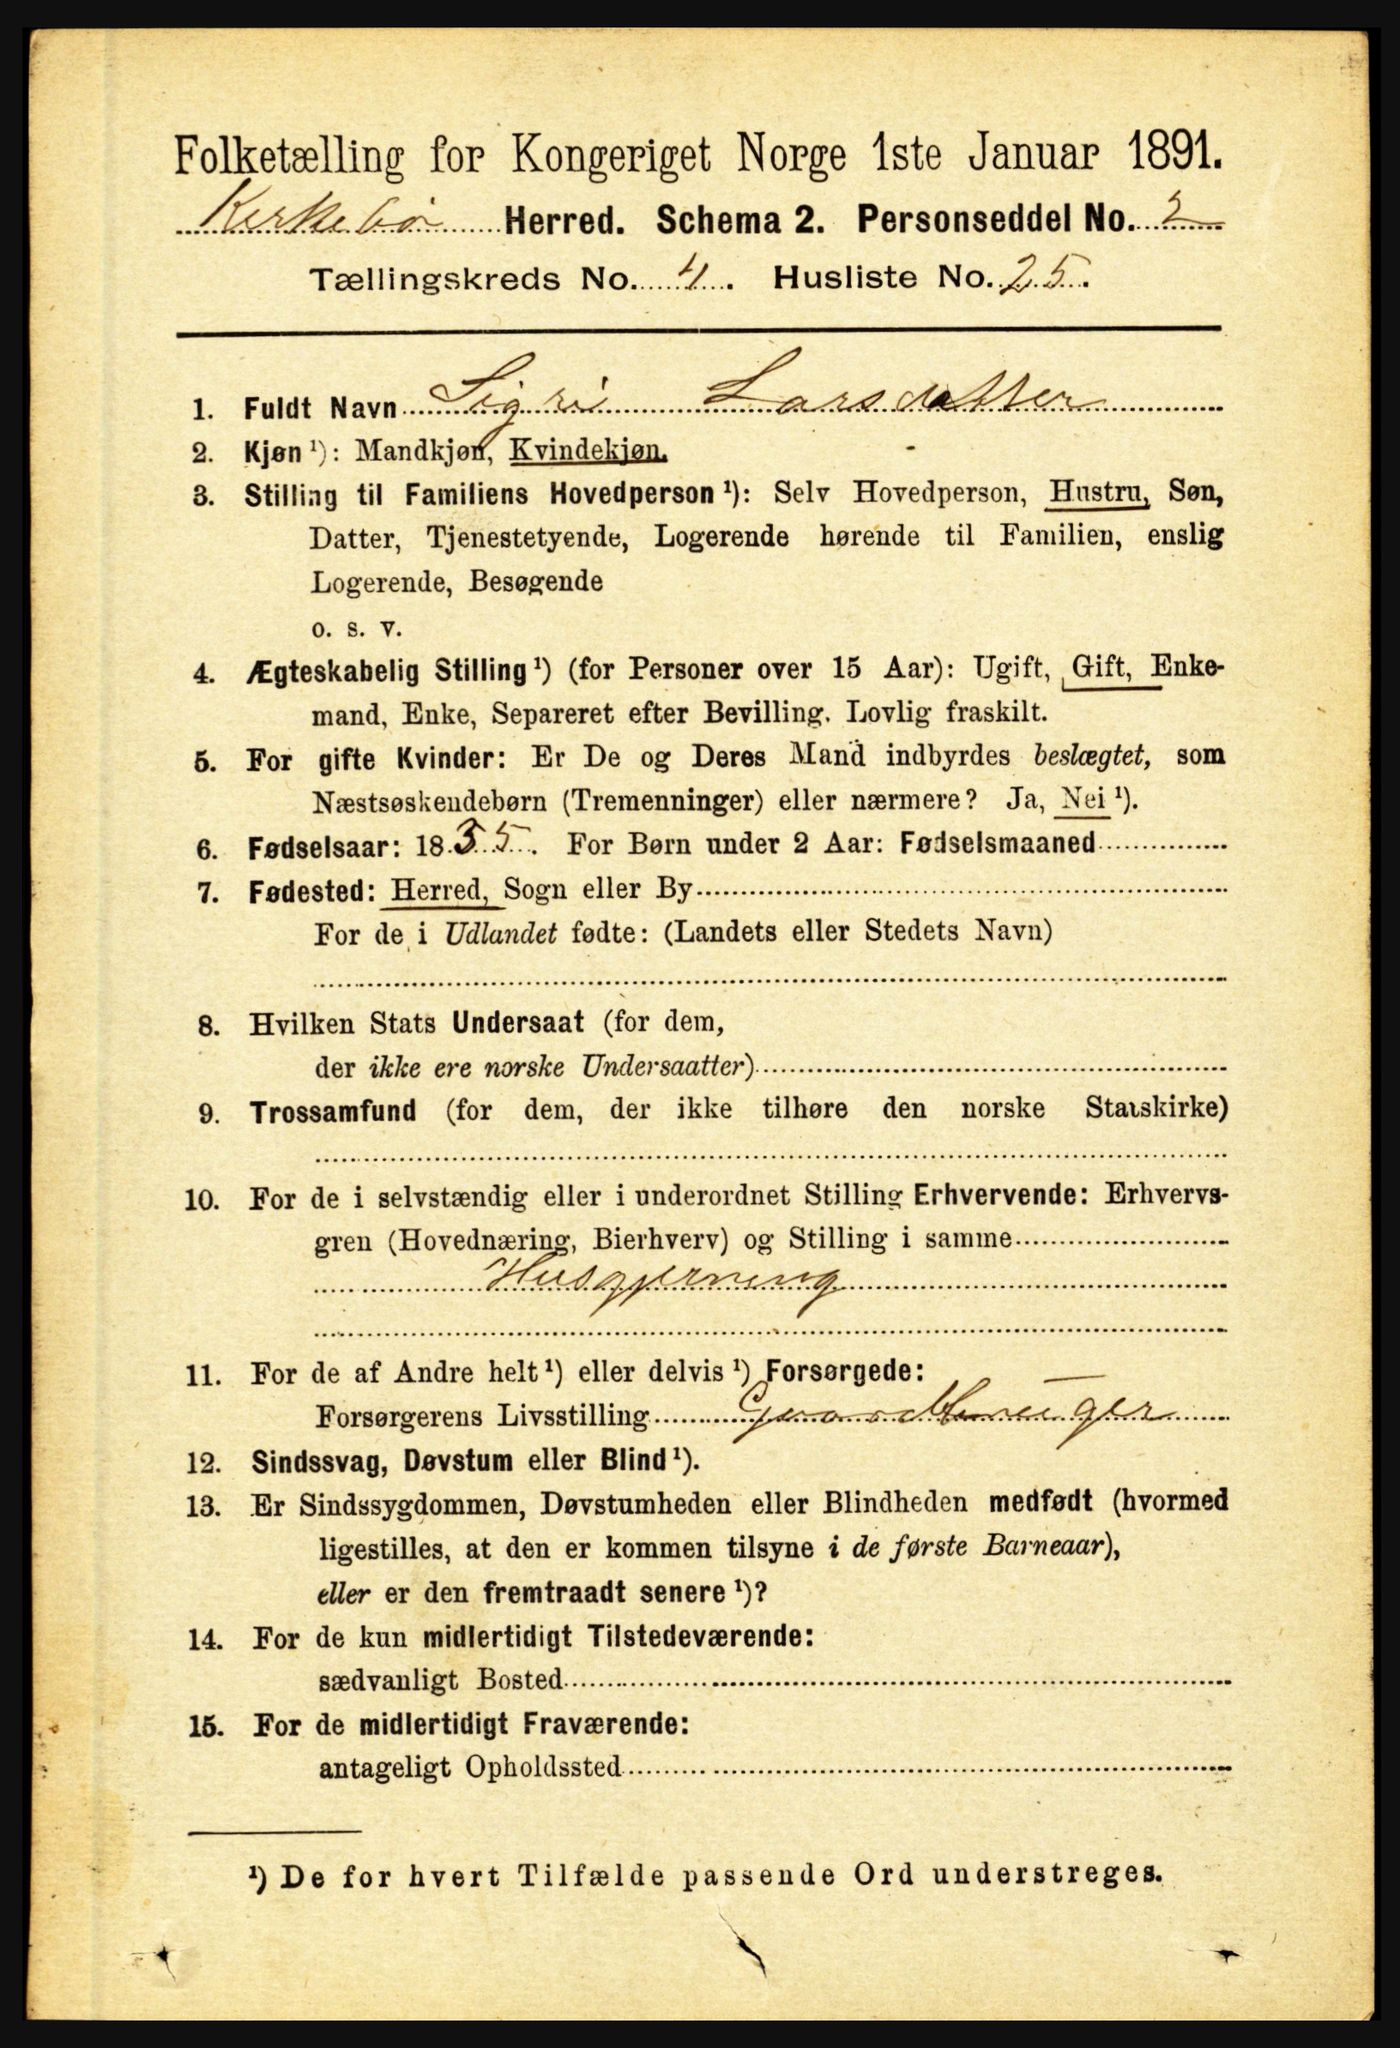 Folketælling for Kongeriget Norge 1ste Januar 1891.
Kirkebø Herred. Schema 2. Personseddel No. 2
Tællingskreds No. 4. Husliste No. 25.
1. Fuldt Navn Sigri Larsdatter
2. Kjøn ¹): Mandkjøn, Kvindekjøn.
3. Stilling til Familiens Hovedperson ¹): Selv Hovedperson, Hustru, Søn,
Datter, Tjenestetyende, Logerende hørende til Familien, enslig
Logerende, Besøgende
o. s. v.
4. Ægteskabelig Stilling ¹) (for Personer over 15 Aar): Ugift, Gift, Enke-
mand, Enke, Separeret efter Bevilling. Lovlig fraskilt.
5. For gifte Kvinder: Er De og Deres Mand indbyrdes beslægtet, som
Næstsøskendebørn (Tremenninger) eller nærmere? Ja, Nei ¹).
6. Fødselsaar: 1835. For Børn under 2 Aar: Fødselsmaaned
7. Fødested: Herred, Sogn eller By
For de i Udlandet fødte: (Landets eller Stedets Navn)
8. Hvilken Stats Undersaat (for dem,
der ikke ere norske Undersaatter)
9. Trossamfund (for dem, der ikke tilhøre den norske Statskirke)
10. For de i selvstændig eller i underordnet Stilling Erhvervende: Erhvervs-
gren (Hovednæring, Bierhverv) og Stilling i samme
Husgjerning
11. For de af Andre helt ¹) eller delvis ¹) Forsørgede:
Forsørgerens Livsstilling Gaardbruger
12. Sindssvag, Døvstum eller Blind ¹).
13. Er Sindssygdommen, Døvstumheden eller Blindheden medfødt (hvormed
ligestilles, at den er kommen tilsyne i de første Barneaar),
eller er den fremtraadt senere ¹)?
14. For de kun midlertidigt Tilstedeværende:
sædvanligt Bosted
15. For de midlertidigt Fraværende:
antageligt Opholdssted
¹) De for hvert Tilfælde passende Ord understreges.